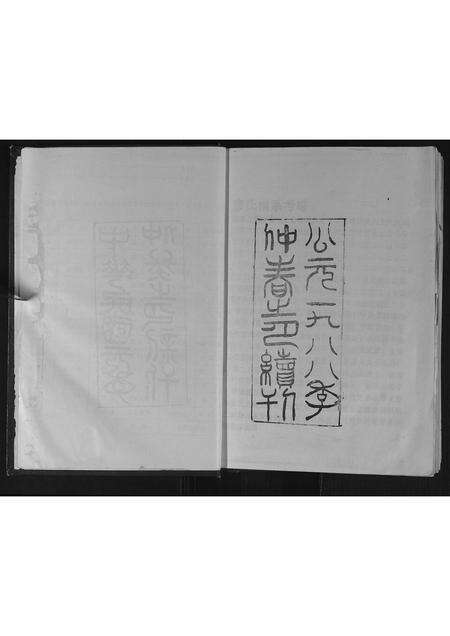 公元一九八八年
仲春續刊